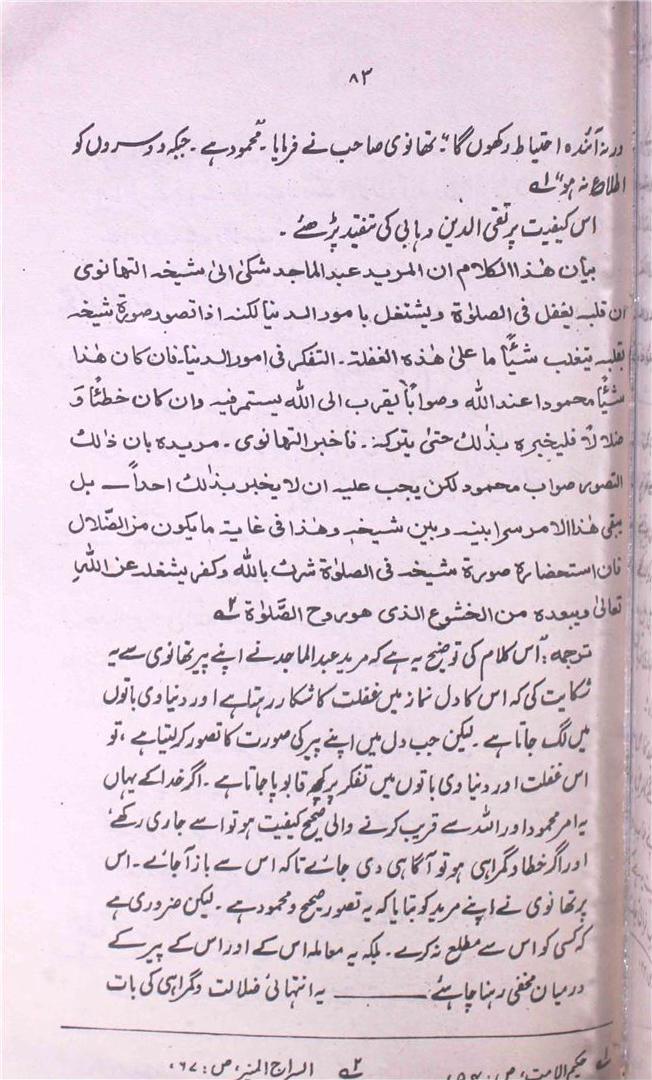 ۸۳
ورنہ آئندہ احتیاط رکھوں گا"۔ تھانوی صاحب نے فرمایا۔ "محمود ہے۔ جبکہ دوسروں کو
اطلاع نہ ہو" ۱ے
اس کیفیت پر تقی الدین وہابی کی تنقید پڑھئے۔
بیان هٰذا الکلام ان المرید عبد الماجد شکیٰ الیٰ شیخہ التھانوی
ان قلبہ یغفل فی الصلوٰة ویشتغل بامور الدنیا لکنہ اذا تصور صورة شیخہ
بقلبہ یتغلب شیئًا ما علیٰ هٰذه الغفلة۔ التفکر فی امور الدنیا۔ فان کان هٰذا
شیئًا محمودا عند الله وصوابًا یقرب الی الله یستمر فیہ وان کان خطئًا وَ
ضلالًا فلیخبرہ بذٰلک حتیٰ یترکہ۔ فاخبر التھانوی۔ مریدہ بان ذالک
التصور صواب محمود لکن یجب علیہ ان لا یخبر بذٰلک احداً۔ بل
یبقی هٰذا الامر سرا بینہ وبین شیخہ وهٰذا فی غایة ما یکون من الضّلال
فان استحضارہ صورة شیخہ فی الصلوٰة شرک بالله وکفر یشغلہ عن اللهِ
تعالیٰ ویبعدہ من الخشوع الذی هو روح الصَّلوٰة ۲ے
ترجمہ: "اس کلام کی توضیح یہ ہے کہ مرید عبدالماجد نے اپنے پیر تھانوی سے یہ
شکایت کی کہ اس کا دل نماز میں غفلت کا شکار رہتا ہے اور دنیاوی باتوں
میں لگ جاتا ہے۔ لیکن جب دل میں اپنے پیر کی صورت کا تصور کر لیتا ہے، تو
اس غفلت اور دنیاوی باتوں میں تفکر پر کچھ قابو پا جاتا ہے۔ اگر خدا کے یہاں
یہ امر محمود اور اللہ سے قریب کرنے والی صحیح کیفیت ہو تو اسے جاری رکھے
اور اگر خطا و گمراہی ہو تو آگاہی دی جائے تاکہ اس سے باز آجائے۔ اس
پر تھانوی نے اپنے مرید کو بتایا کہ یہ تصور صحیح و محمود ہے۔ لیکن ضروری ہے
کہ کسی کو اس سے مطلع نہ کرے۔ بلکہ یہ معاملہ اس کے اور اس کے پیر کے
درمیان مخفی رہنا چاہئے ——— یہ انتہائی ضلالت و گمراہی کی بات
۱ے حکیم الامت، ص: ۲ے السراج المنیر، ص: ۶۷،